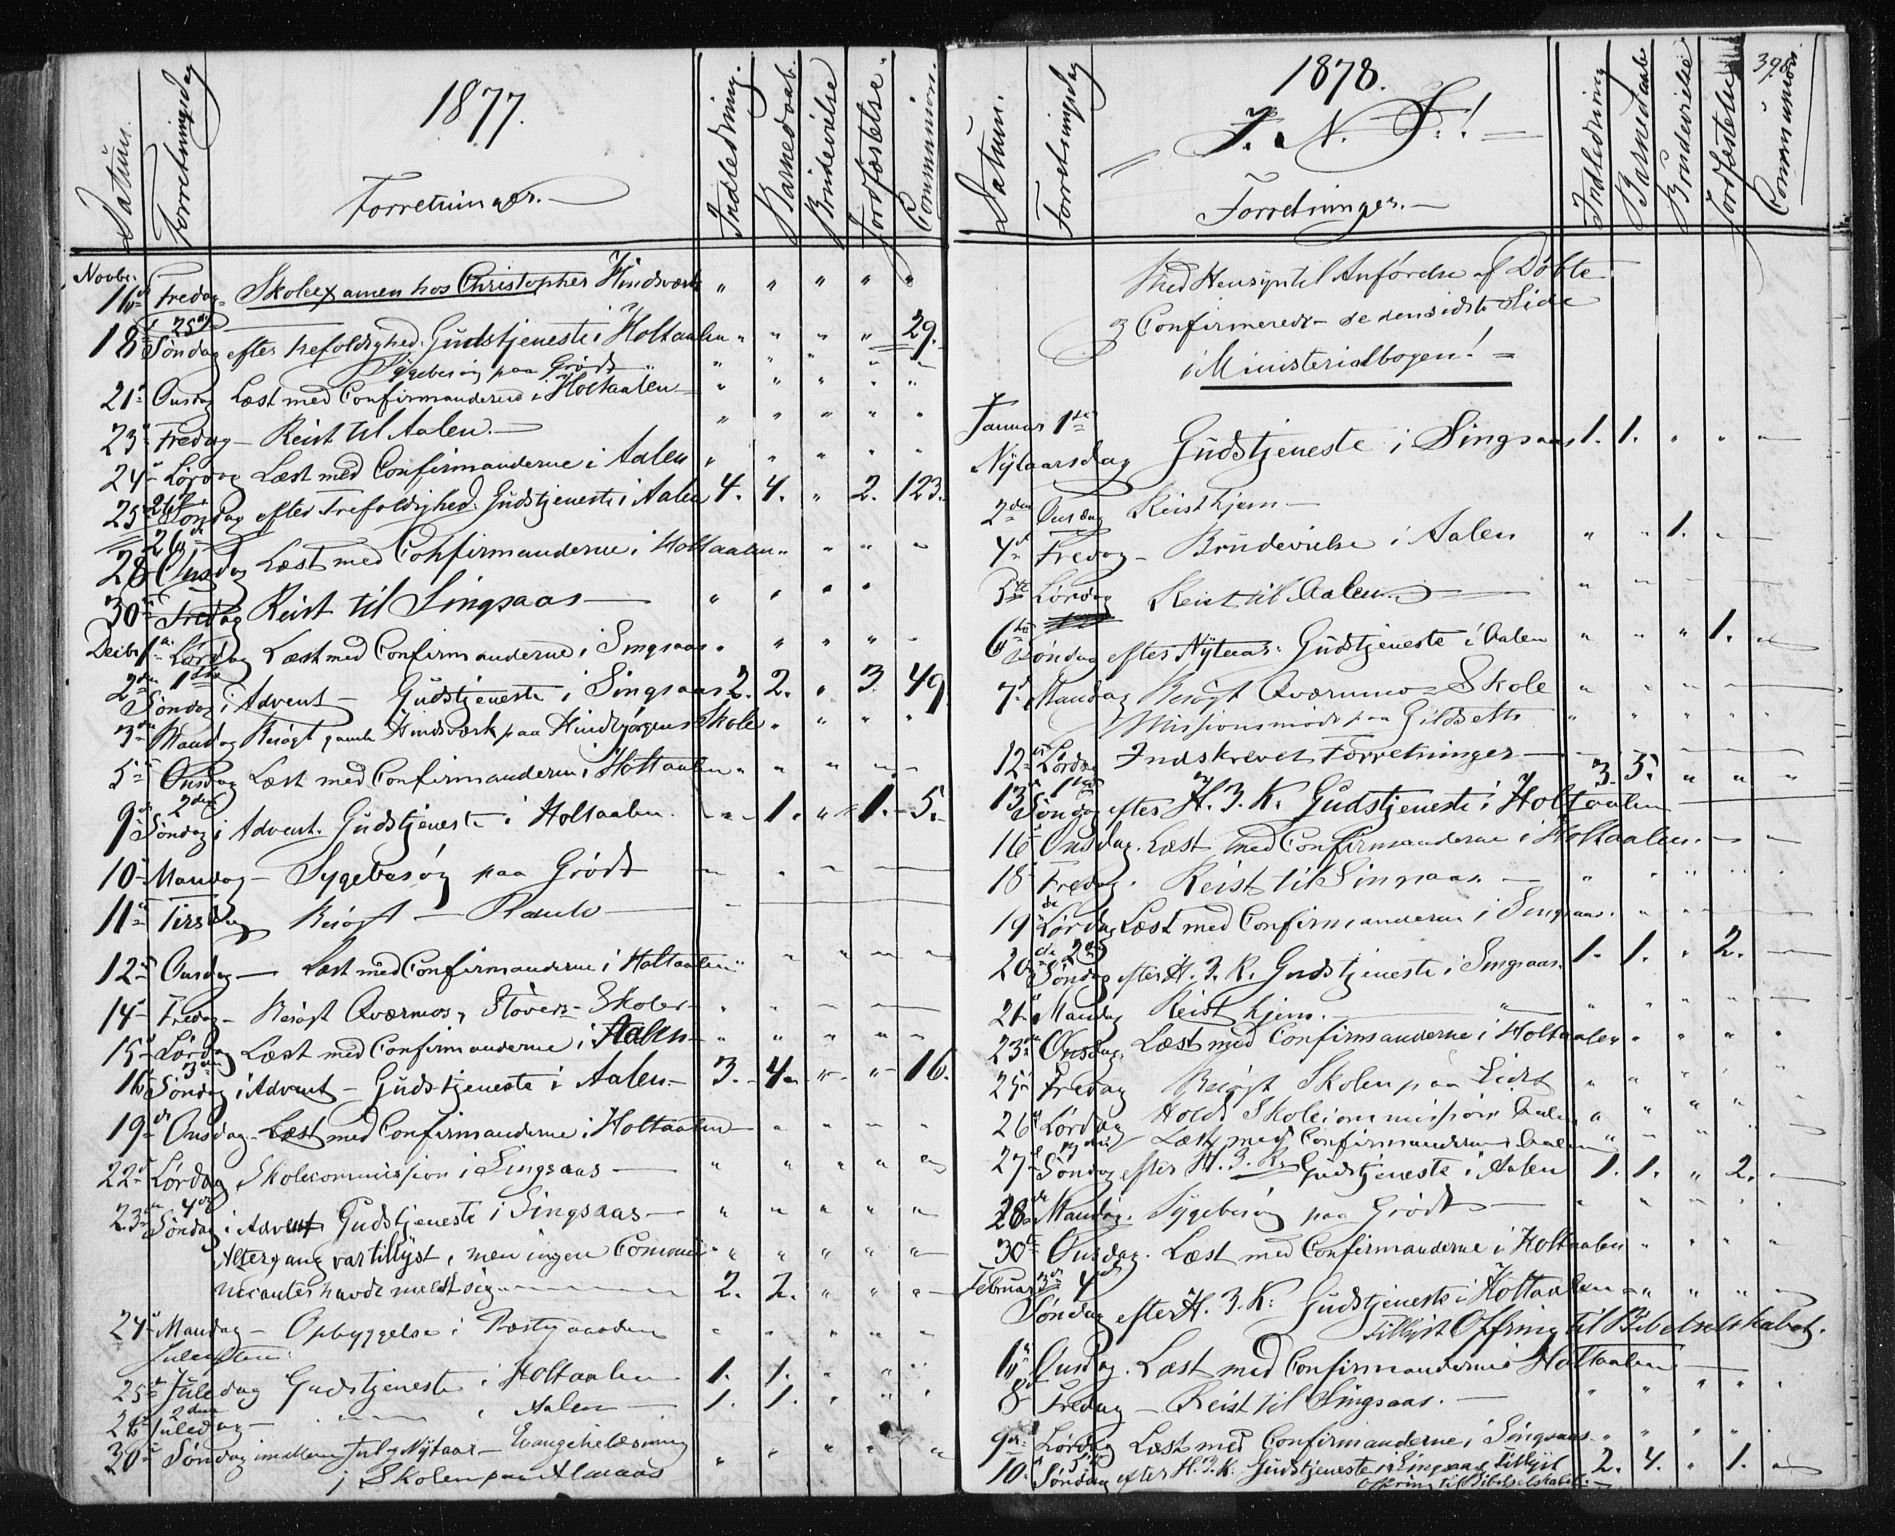 1877.
Datum. Forretningsdag Forretninger. Indledning. Barnedaab. Brudevielse Jordfæstelse. Communion.
Novbr.
16de Fredag Skoleexamen hos Christopher Hindsværk " " " " "
18 25de Søndag efter Trefoldighed. Gudstjeneste i Holtaalen " " " " 29.
Sygebesøg paa Grødt " " " " "
21de Onsdag Læst med Confirmanderne i Holtaalen " " " " "
23de Fredag – Reist til Aalen. – " " " " "
24de Lørdag Læst med Confirmanderne i Aalen " " " " "
25 26de Søndag efter Trefoldighed. Gudstjeneste i Aalen 4. 4. " 2. 123.
28 Onsdag Læst med Confirmanderne i Holtaalen " " " "
30te Fredag Reist til Singsaas – " " " "
Decbr 1ste Lørdag Læst med Confirmanderne i Singsaas " " " " "
2den 1ste Søndag i Advent – Gudstjeneste i Singsaas 2. 2. " 3. 49.
3die Mandag Besøgt gamle Hindsværk paa Hindbjørgens Skole " " " "
5te Onsdag Læst med Confirmanderne i Holtaalen " " " " "
9de 2den Søndag i Advent. Gudstjeneste i Holtaalen. " 1. " 1. 5.
10de Mandag – Sygebesøg paa Grødt
11te Tirsdag Besøgt –
12te Onsdag – Læst med Confirmanderne i Holtaalen " " " "
14de Fredag – Besøgt Qværnmos, Støvers – Skoler – " " " "
15de Lørdag Læst med Confirmanderne i Aalen – " " " " "
16de 3die Søndag i Advent – Gudstjeneste i Aalen – 3. 4. " " 16.
19de Onsdag – Læst med Confirmanderne i Holtaalen " " " "
22de Lørdag, Skolecommission i Singsaas – " " " " "
23de 4de Søndag i Advent Gudstjeneste i Singsaas – " " " " "
Altergang var tillyst, men ingen Commu- " " " " "
nicanter havde meldt sig 2. 2. " " "
24de Mandag – Opbyggelse i Præstegaarden " " " " "
Juleaften.
25de Juledag Gudstjeneste i Holtaalen 1. 1. " "
26de 2den Juledag – " i Aalen 1. 1. " " "
30te Søndag imellem Jul og Nytaar – Evangelielæsning " " " " "
i Skolen paa Almaas
398.
1878.
I. N. J.!
Datum. Forretningsdag Forretninger. – Indledning Barnedaab Brudevielse Jordfæstelse Communion.
Med Hensyn til Anførelse af Døbte
og Confirmerede – se den sidste Side
i Ministerialbogen! –
Januar 1ste
Nytaarsdag Gudstjeneste i Singsaas 1. 1. " " "
2den Onsdag Reist hjem –
4de Fredag – Brudevielse i Aalen " " 1. " "
5te Lørdag Reist til Aalen. – " " " "
6te Søndag efter Nytaar: Gudstjeneste i Aalen " " " 1. "
7de Mandag Besøgt Qværnmo – Skole " " " " "
Missionsmøde paa Gildsett " " " " "
12te Lørdag Indskrevet Forretninger –
13de 1ste Søndag efter H. 3. K. Gudstjeneste i Holtaalen 3. 5. " " "
16de Onsdag. Læst med Confirmanderne i Holtaalen.
18de Fredag. Reist til Singsaas. – " " " " "
19de Lørdag Læst med Confirmanderne i Singsaas. " " "
20de 2den Søndag efter H. 3. K. Gudstjeneste i Singsaas. 1. 1. " 2. –
21de Mandag Reist hjem. – " " " " "
23de Onsdag. Læst med Confirmanderne i Holtaalen " " " "
25de Fredag Besøgt Skolen paa Eidet " " " " "
26de Lørdag Holdt Skolecommission i Aalen " " " " "
Læst med Confirmanderne i Aalen " " " " "
27de 3die Søndag efter H. 3. K. Gudstjeneste i Aalen 1. 1. " 2. "
28de Mandag. Sygebesøg paa Grødt – " " " " "
30te Onsdag. Læst med Confirmanderne i Holtaalen " " " "
Februar 3die 4de
Søndag efter H. 3. K: Gudstjeneste i Holtaalen " " " "
Tillyst Offring til Bibelselskabet.
Onsdag. Læst med Confirmanderne i Holtaalen –
8de Fredag – Reist til Singsaas. – " " " " "
9de Lørdag Læst med Confirmanderne i Singsaas. " " " "
10de 5te Søndag efter H. 3. K: Gudstjeneste i Singsaas Tillyst 2. 4. " 1. "
Offring til Bibelselskabet. –